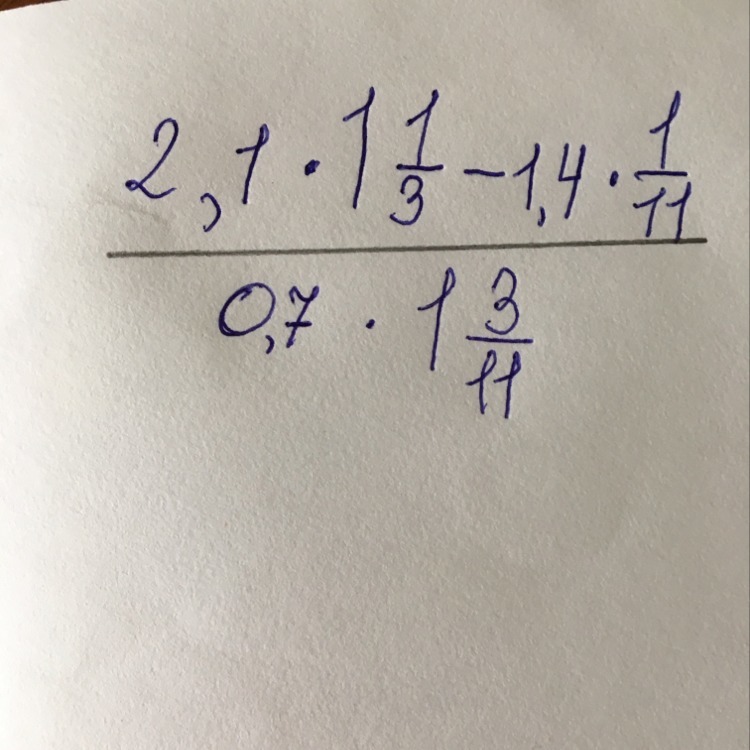 2,1 · 1 1/3 − 1,4 · 1/11
0,7 · 1 3/11